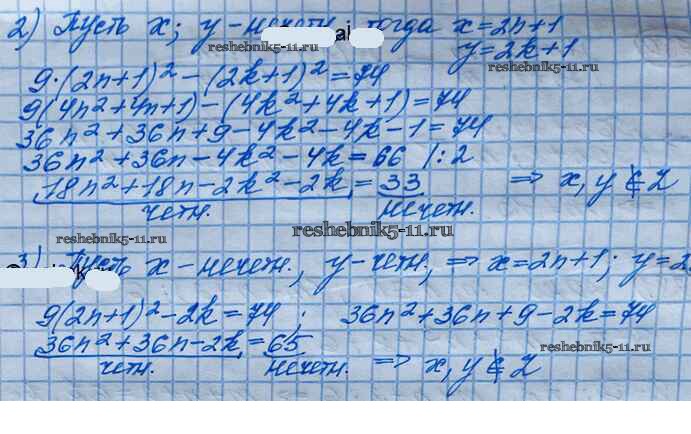 2) Пусть x; y – нечетн. тогда x = 2n+1
reshebnik5-11.ru
y = 2k+1
reshebnik5-11.ru
9·(2n+1)² – (2k+1)² = 74
9(4n²+4n+1) – (4k²+4k+1) = 74
36n²+36n+9–4k²–4k–1 = 74
36n²+36n–4k²–4k = 66 /:2
18n²+18n–2k²–2k = 33 ⇒ x, y ∉ Z
четн. нечетн.
reshebnik5-11.ru
reshebnik5-11.ru
3) Пусть x – нечетн., y – четн., ⇒ x = 2n+1; y = 2
9(2n+1)² – 2k = 74; 36n²+36n+9–2k = 74
36n²+36n–2k = 65 ⇒ x, y ∉ Z
reshebnik5-11.ru
четн. нечетн.